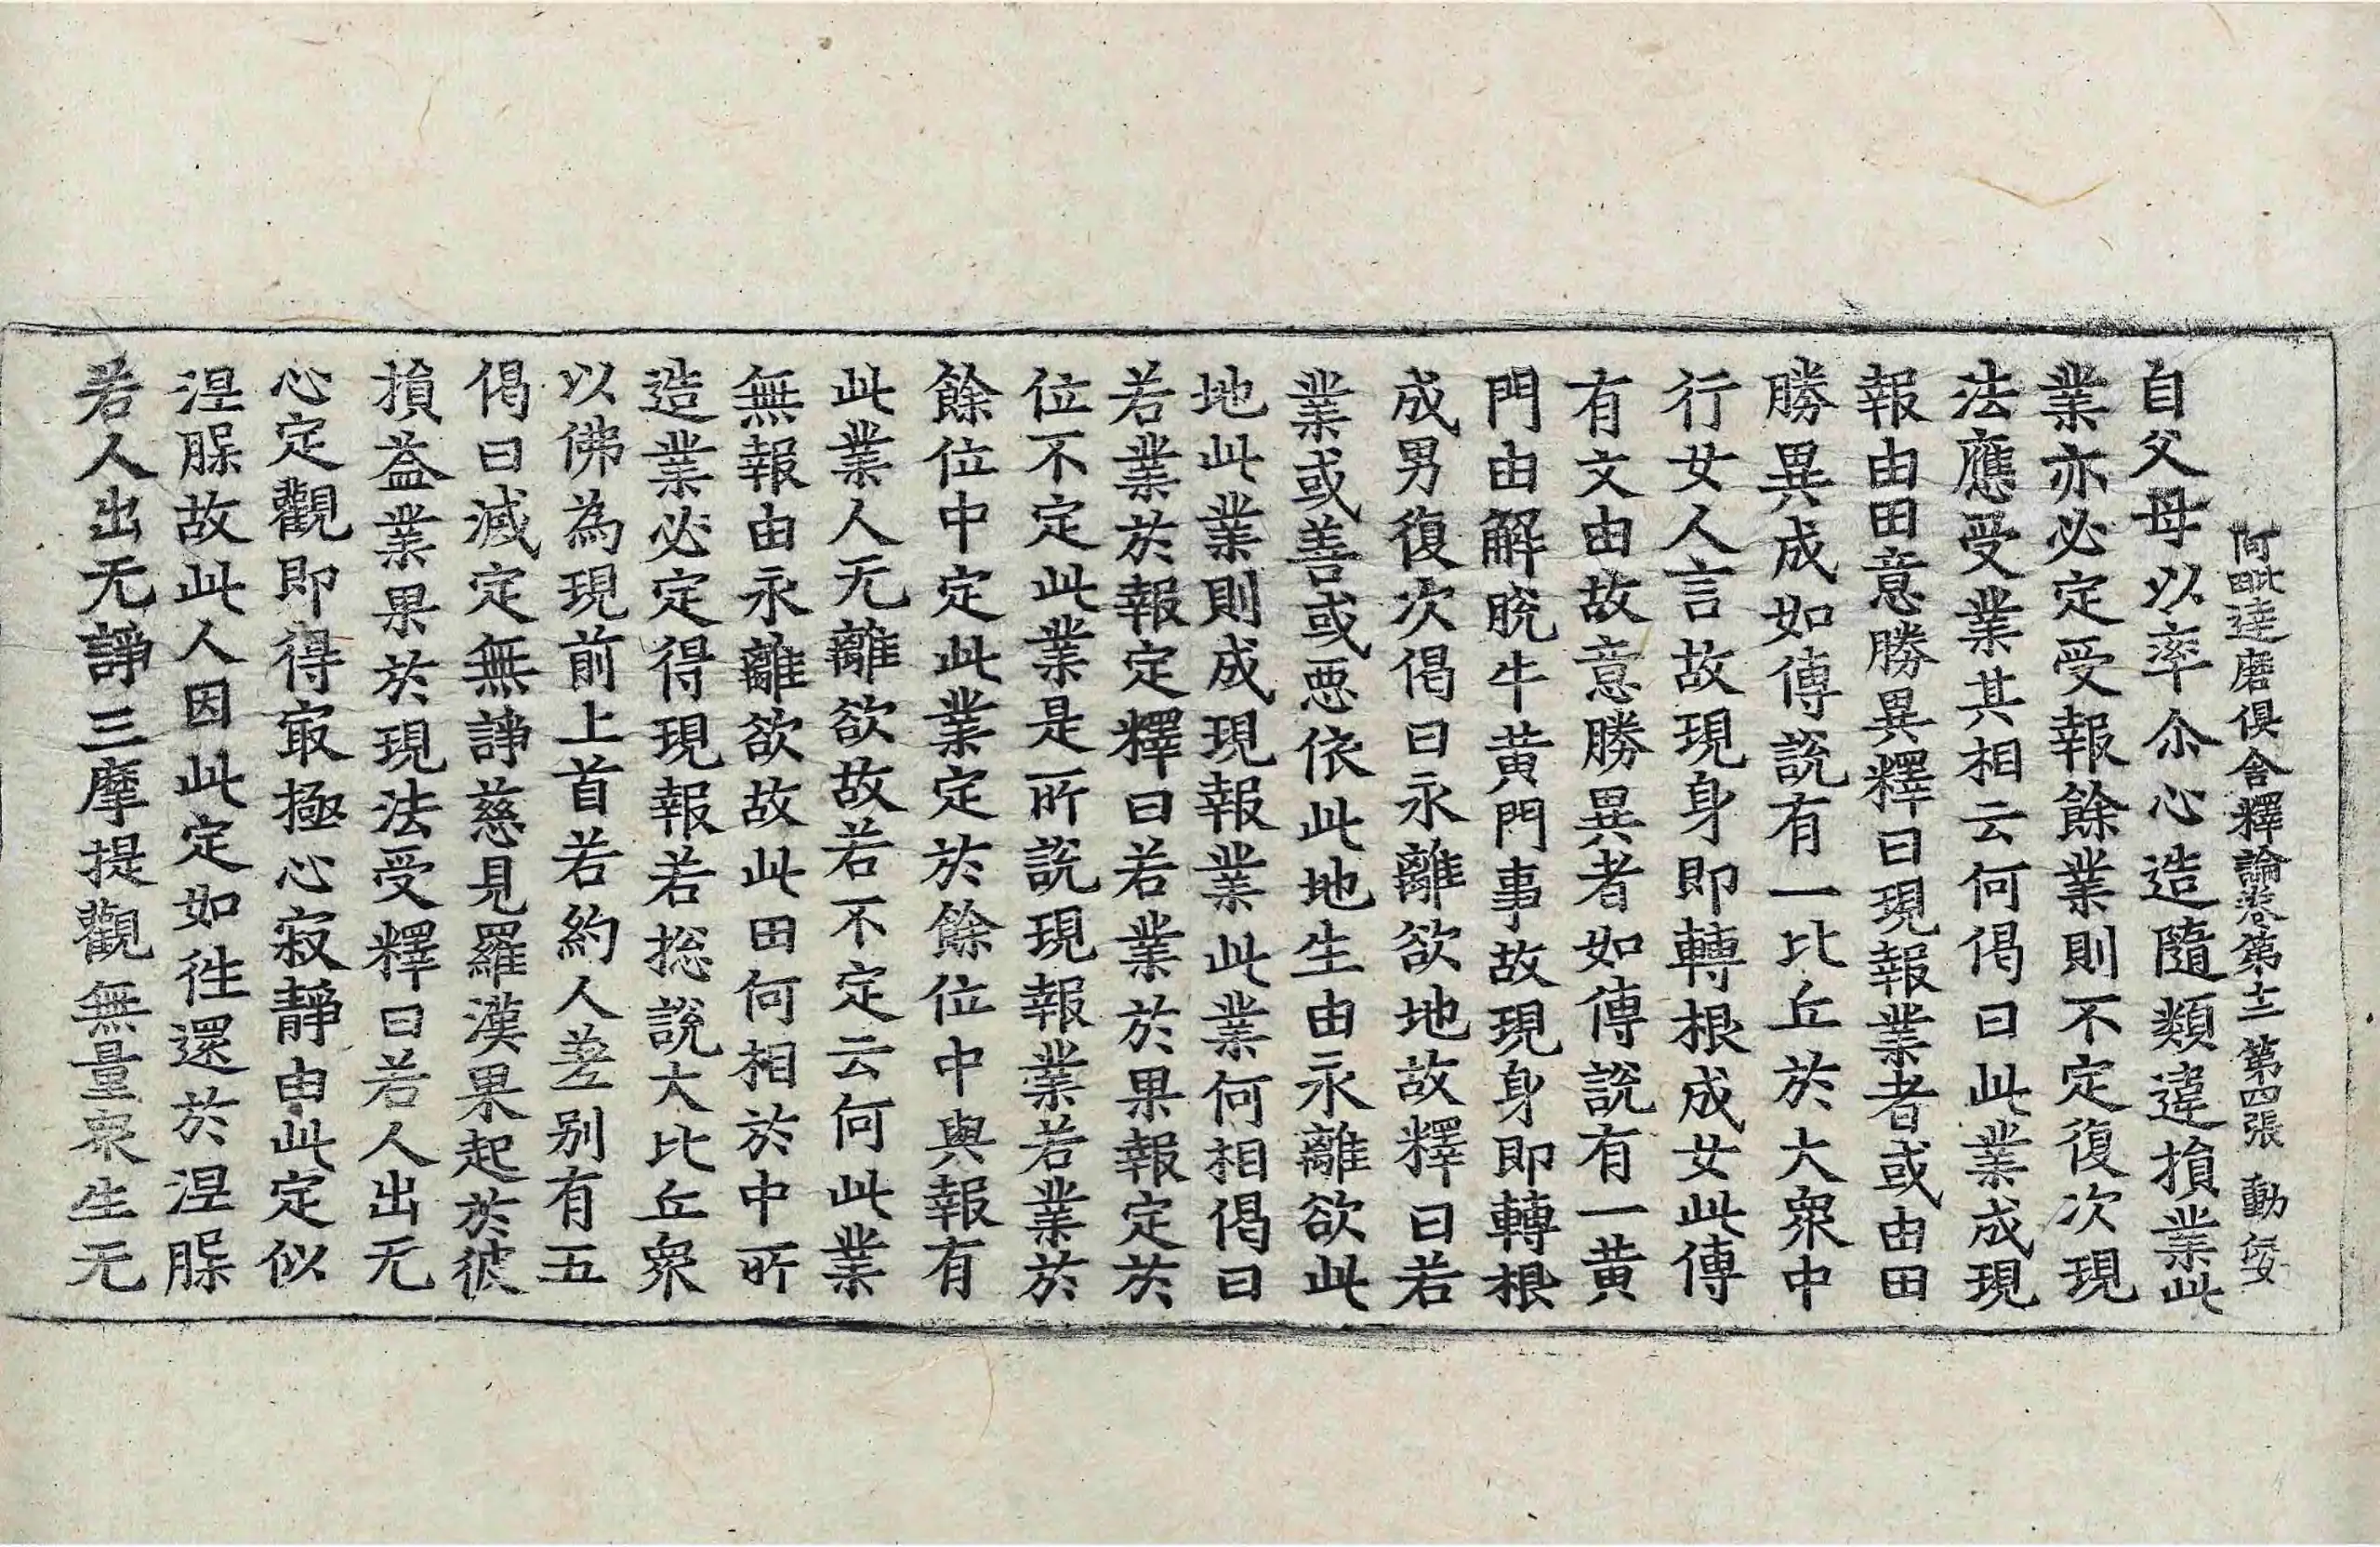 阿毗達磨俱舍釋論卷第十二 第四張 動
自父母以率尒心造隨類違損業此
業亦必定受報餘業則不定復次現
法應受業其相云何偈曰此業成現
報由田意勝異釋曰現報業者或由田
勝異成如傳說有一比丘於大衆中
行女人言故現身即轉根成女此傳
有文由故意勝異者如傳說有一黄
門由解脫牛黄門事故現身即轉根
成男復次偈曰永離欲地故釋曰若
業或善或惡依此地生由永離欲此
地此業則成現報業此業何相偈曰
若業於報定釋曰若業於果報定於
位不定此業是所說現報業若業於
餘位中定此業定於餘位中與報有
此業人无離欲故若不定云何此業
無報由永離欲故此田何相於中所
造業必定得現報若捴說大比丘衆
以佛為現前上首若約人差别有五
偈曰滅定無諍慈見羅漢果起於彼
損益業果於現法受釋曰若人出无
心定觀即得㝡極心寂靜由此定似
涅槃故此人因此定如徃還於涅槃
若人出无諍三摩提觀無量衆生无